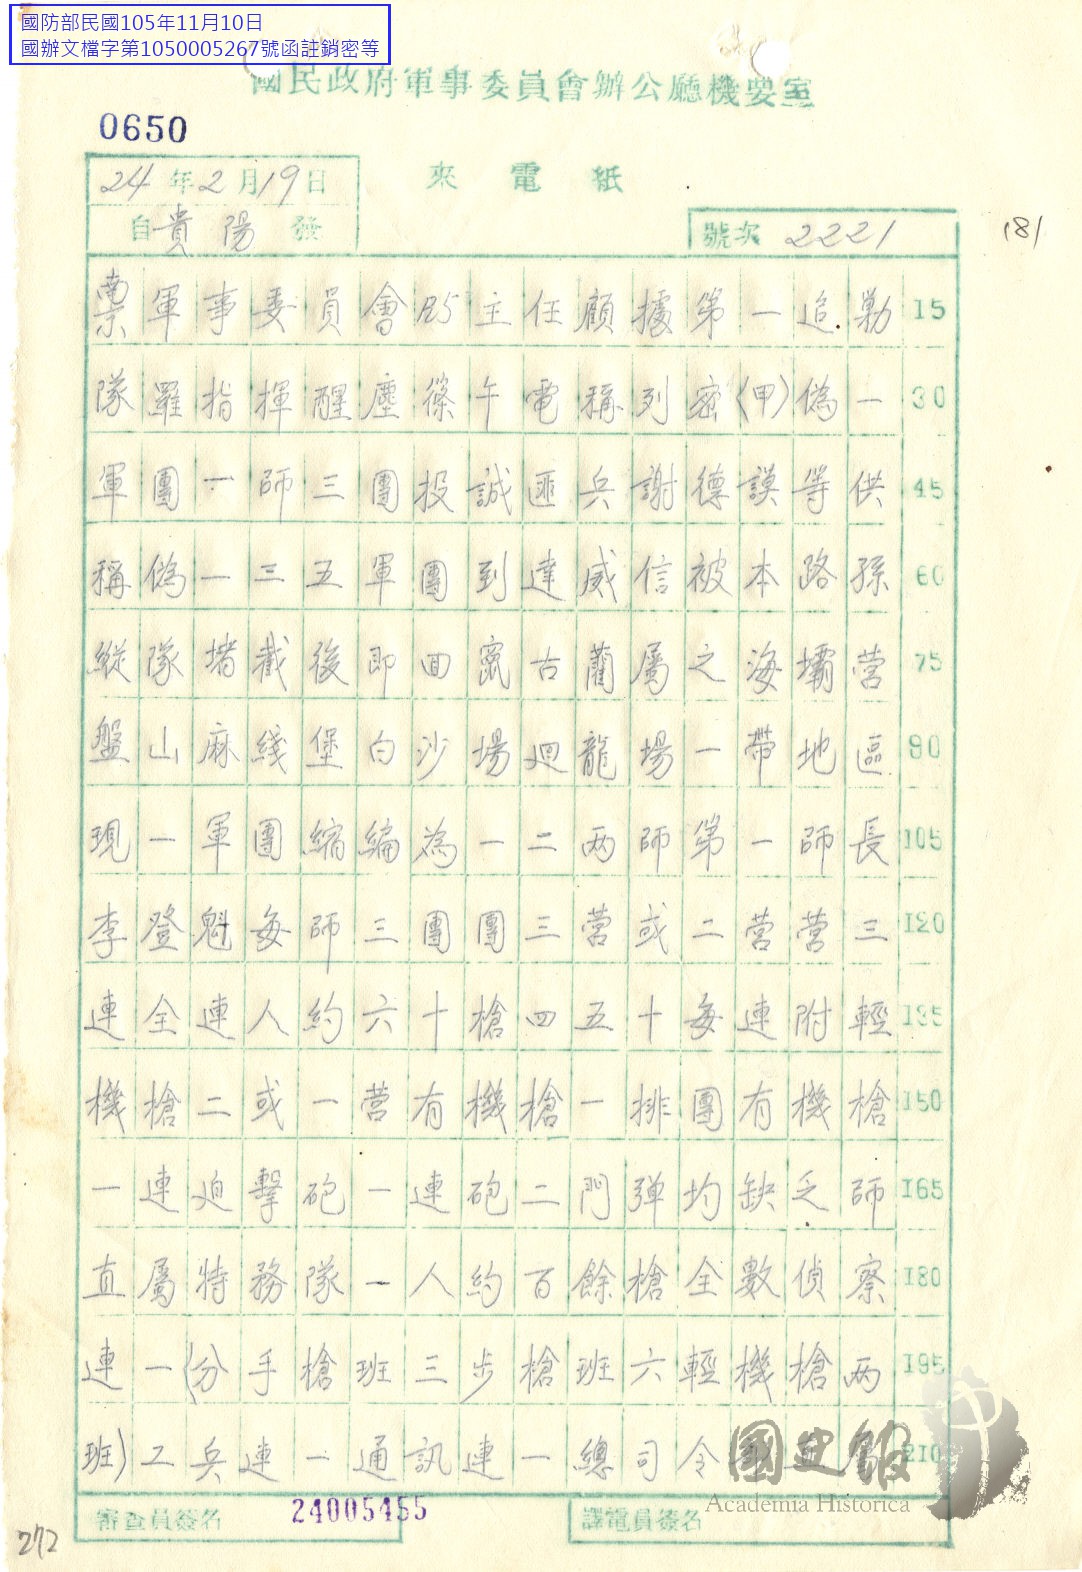 國防部民國105年11月10日
國辦文檔字第1050005267號函註銷密等
國民政府軍事委員會辦公廳機要室
0650
來電紙
24年2月19日
自貴陽發
號次 2221
181
軍事委員會B5主任顧據第一追勦 15
隊羅指揮醒塵篠午電稱列密(甲)偽一 30
軍團一師三團投誠匪兵謝德謨等供 45
稱偽一三五軍團到達威信被本路孫 60
縱隊堵截後即回竄古藺屬之海壩营 75
盤山麻綫堡白沙場迴龍場一帶地區 90
現一軍團縮編為一二两師第一師長 105
李登魁每師三團團三营或二营营三 120
連全連人約六十槍四五十每連附輕 135
機槍二或一营有機槍一排團有機槍 150
一連迫擊砲一連砲二門弹均缺乏師 165
直屬特務隊一人約百餘槍全數偵察 180
連一(分手槍班三步槍班六輕機槍两 195
班)工兵連一通訊連一總司令部直屬 210
國史館
Academia Historica
審查員簽名
24005455
譯電員簽名
272